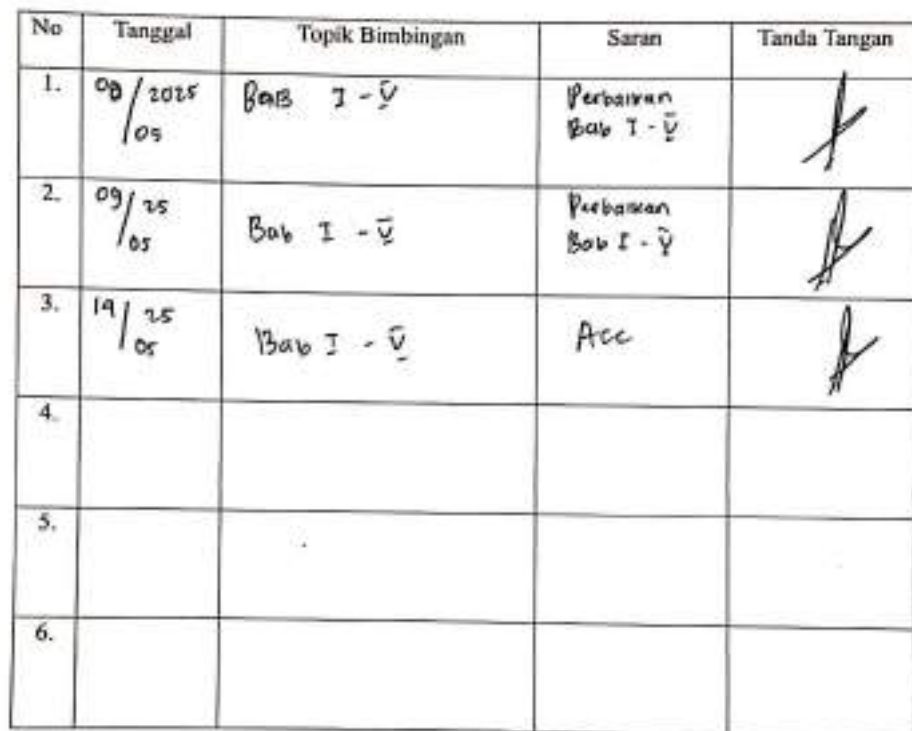 No Tanggal Topik Bimbingan Saran Tanda Tangan
1. 08/05 2025 BAB I - V Perbaikan
Bab I - V
2. 09/05 25 Bab I - V Perbaikan
Bab I - V
3. 14/05 25 Bab I - V Acc
4.
5.
6.